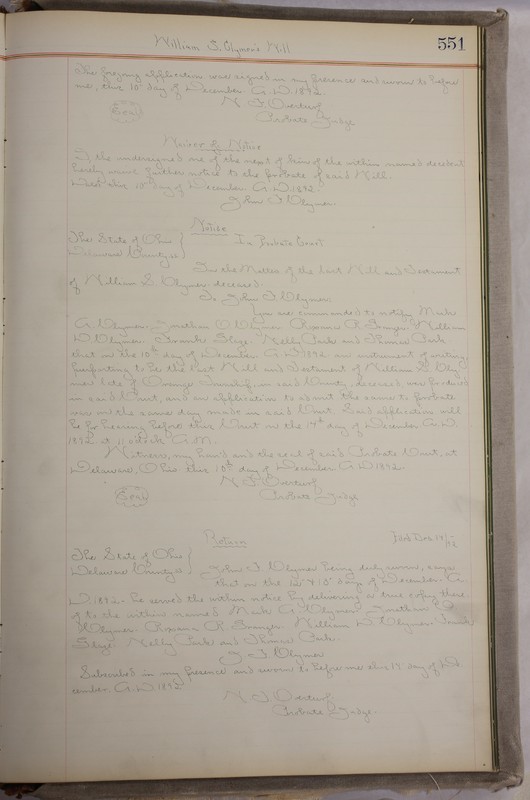 William S. Clymer's Will
551
The foregoing application was signed in my presence and sworn to before
me, this 10" day of December A.D. 1892.
(Seal)
N. F. Overturf
Probate Judge
Waiver of Notice
I, the undersigned one of the next of kin of the within named decedent
hereby waive further notice to the probate of said Will.
this 10" day of December A.D. 1892.
John F. Clymer
Notice
The State of Ohio
Delaware County ss.
In Probate Court
In the Matter of the Last Will and Testament
of William S. Clymer deceased.
To John F. Clymer
You are commanded to notify
A. Clymer, Jonathan O. Clymer, Roxana R. Granger, William
W. Clymer, Frank Slyze, Nelly Park and Thomas Park
that on the 10th day of December A.D. 1892 an instrument of writing,
purporting to be the last Will and Testament of William S. Cly
mer late of Orange Township, in said County, deceased was produced
in said Court, and an application to admit the same to probate
was on the same day made in said Court. Said application will
be for hearing before this Court on the 14th day of December A.D.
1892 at 11 o'clock A.M.
Witness, my hand and the seal of said Probate Court, at
Delaware, Ohio this 10th day of December A.D. 1892.
N. F. Overturf
(Seal)
Probate Judge
Return
Filed Dec 14/92
The State of Ohio
Delaware County ss.
John F. Clymer being duly sworn, says
that on the 12 & 13" days of December A.
D. 1892. he served the within notice by delivering a true copy there
of to the within named A. Clymer, Jonathan O.
Clymer, Roxana R. Granger, William W. Clymer, Frank
Slyze, Nelly Park and Thomas Park.
J. F. Clymer
Subscribed in my presence and sworn to before me this 14 day of De
cember A.D. 1892
N. F. Overturf
Probate Judge.